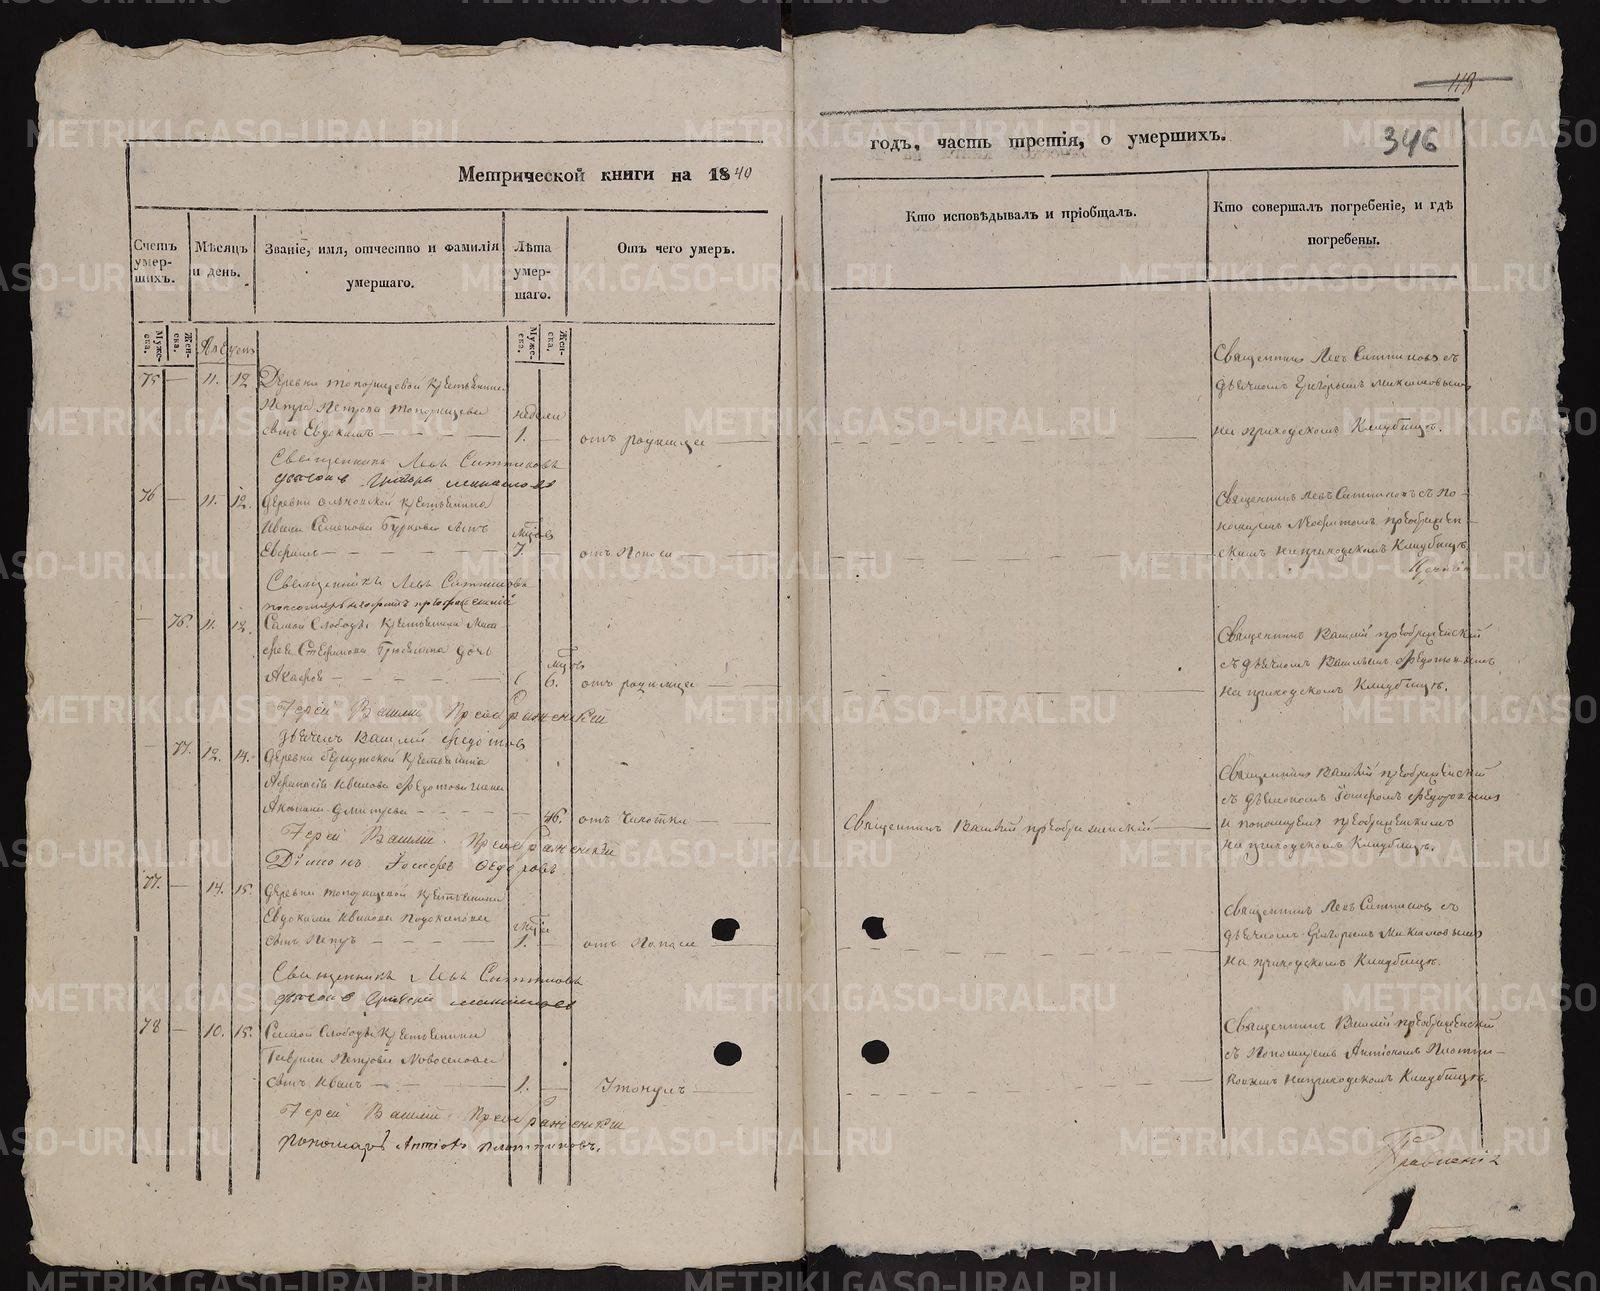 Метрической книги на 1840
Счетъ умер-
шихъ.
Мѣсяцъ и день.
Званіе, имя, отчество и фамилія
умершаго.
Лѣта
умер-
шаго.
Отъ чего умеръ.
Муже-
ска.
Жен-
ска.
Августъ
Муже-
ска.
Жен-
ска.
75 — 11. 12 Деревни Топорищевой крестьянина
Петра Петрова Топорищева недели
сынъ Евдокимъ — 1. — отъ родимца
Священникъ Левъ Ситниковъ
76 — 11. 12. Деревни крестьянина
Ивана Семенова Буркова сынъ
Ефремъ — 7. отъ поноса
Священникъ Левъ Ситниковъ
— 76. 11. 12. Самой Слободы крестьянина
Стефанова дочь
6. отъ родимца
Іерей Василій Преображенскій
дьячекъ Василій Федотовъ
— 77. 12. 14. Деревни крестьянина
Афанасія Иванова Федотова жена
Акилина Дмитріева — 46. отъ чихотки
Іерей Василій Преображенскій
Діаконъ Іосифъ Федоровъ
77. — 14. 15. Деревни Топорищевой крестьянина
Евдокима Иванова
сынъ Петръ — 1. отъ поноса
Священникъ Левъ Ситниковъ
78 — 10. 15. Самой Слободы крестьянина
Гавриила Петрова Новоселова
сынъ Иванъ — 1. Утонулъ
Іерей Василій Преображенскій
пономарь Антіохъ Плотниковъ.
118
годъ, часть третія, о умершихъ.
346
Кто исповѣдывалъ и пріобщалъ.
Кто совершалъ погребеніе, и гдѣ
погребены.
Священникъ Левъ Ситниковъ съ
дьячкомъ Григорьемъ
на приходскомъ Кладбищѣ.
Священникъ Левъ Ситниковъ съ по-
номаремъ Неофитомъ Преображен-
скимъ на приходскомъ Кладбищѣ.
Священникъ Василій Преображенскій
съ дьячкомъ Васильемъ Федотовымъ
на приходскомъ Кладбищѣ.
Священникъ Василій Преображенскій
съ діакономъ Іосифомъ Федоровымъ
и пономаремъ Преображенскимъ
на приходскомъ Кладбищѣ.
Священникъ Василій Преображенскій
Священникъ Левъ Ситниковъ съ
дьячкомъ Григорьемъ
на приходскомъ Кладбищѣ.
Священникъ Василій Преображенскій
съ пономаремъ Антіохомъ Плотни-
ковымъ на приходскомъ Кладбищѣ.
METRIKI.GASO-URAL.RU